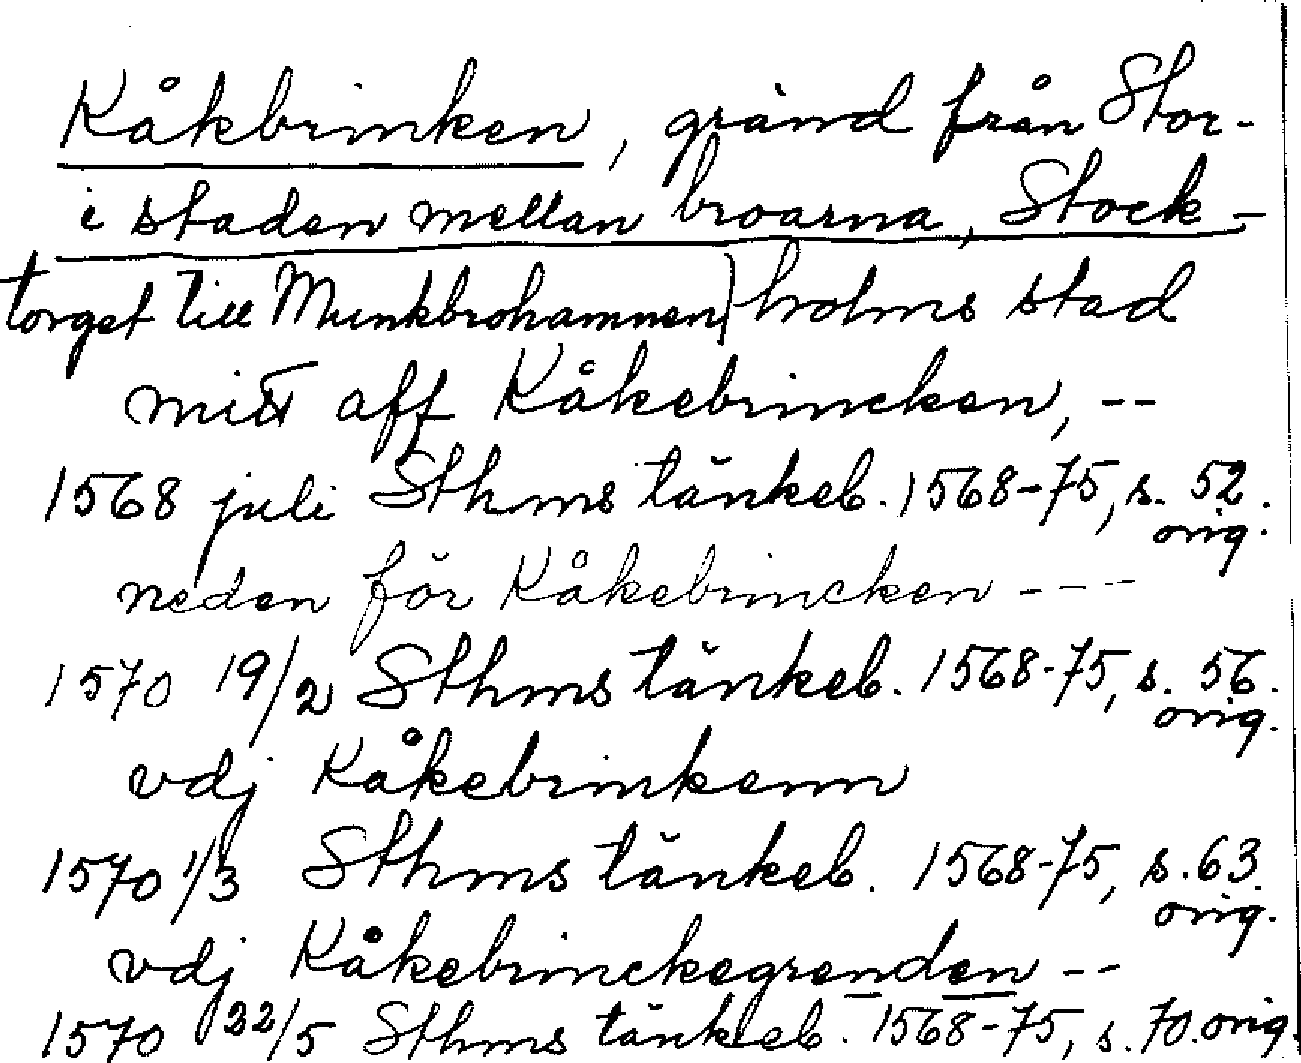 Kåkbrinken, gränd från Stor-
i staden mellan broarna, Stock-
torget till Munkbrohamnen) holms stad
mitt aff Kåkebrincken, --
1568 juli Sthms tänkeb. 1568-75, s. 52.
orig.
neden för Kåkebrincken ---
1570 19/2 Sthms tänkeb. 1568-75, s. 56.
orig.
vdj Kåkebrinkenn
1570 1/3 Sthms tänkeb. 1568-75, s. 63.
orig.
vdj Kåkebrinckegrenden --
1570 22/5 Sthms tänkeb. 1568-75, s. 70. orig.